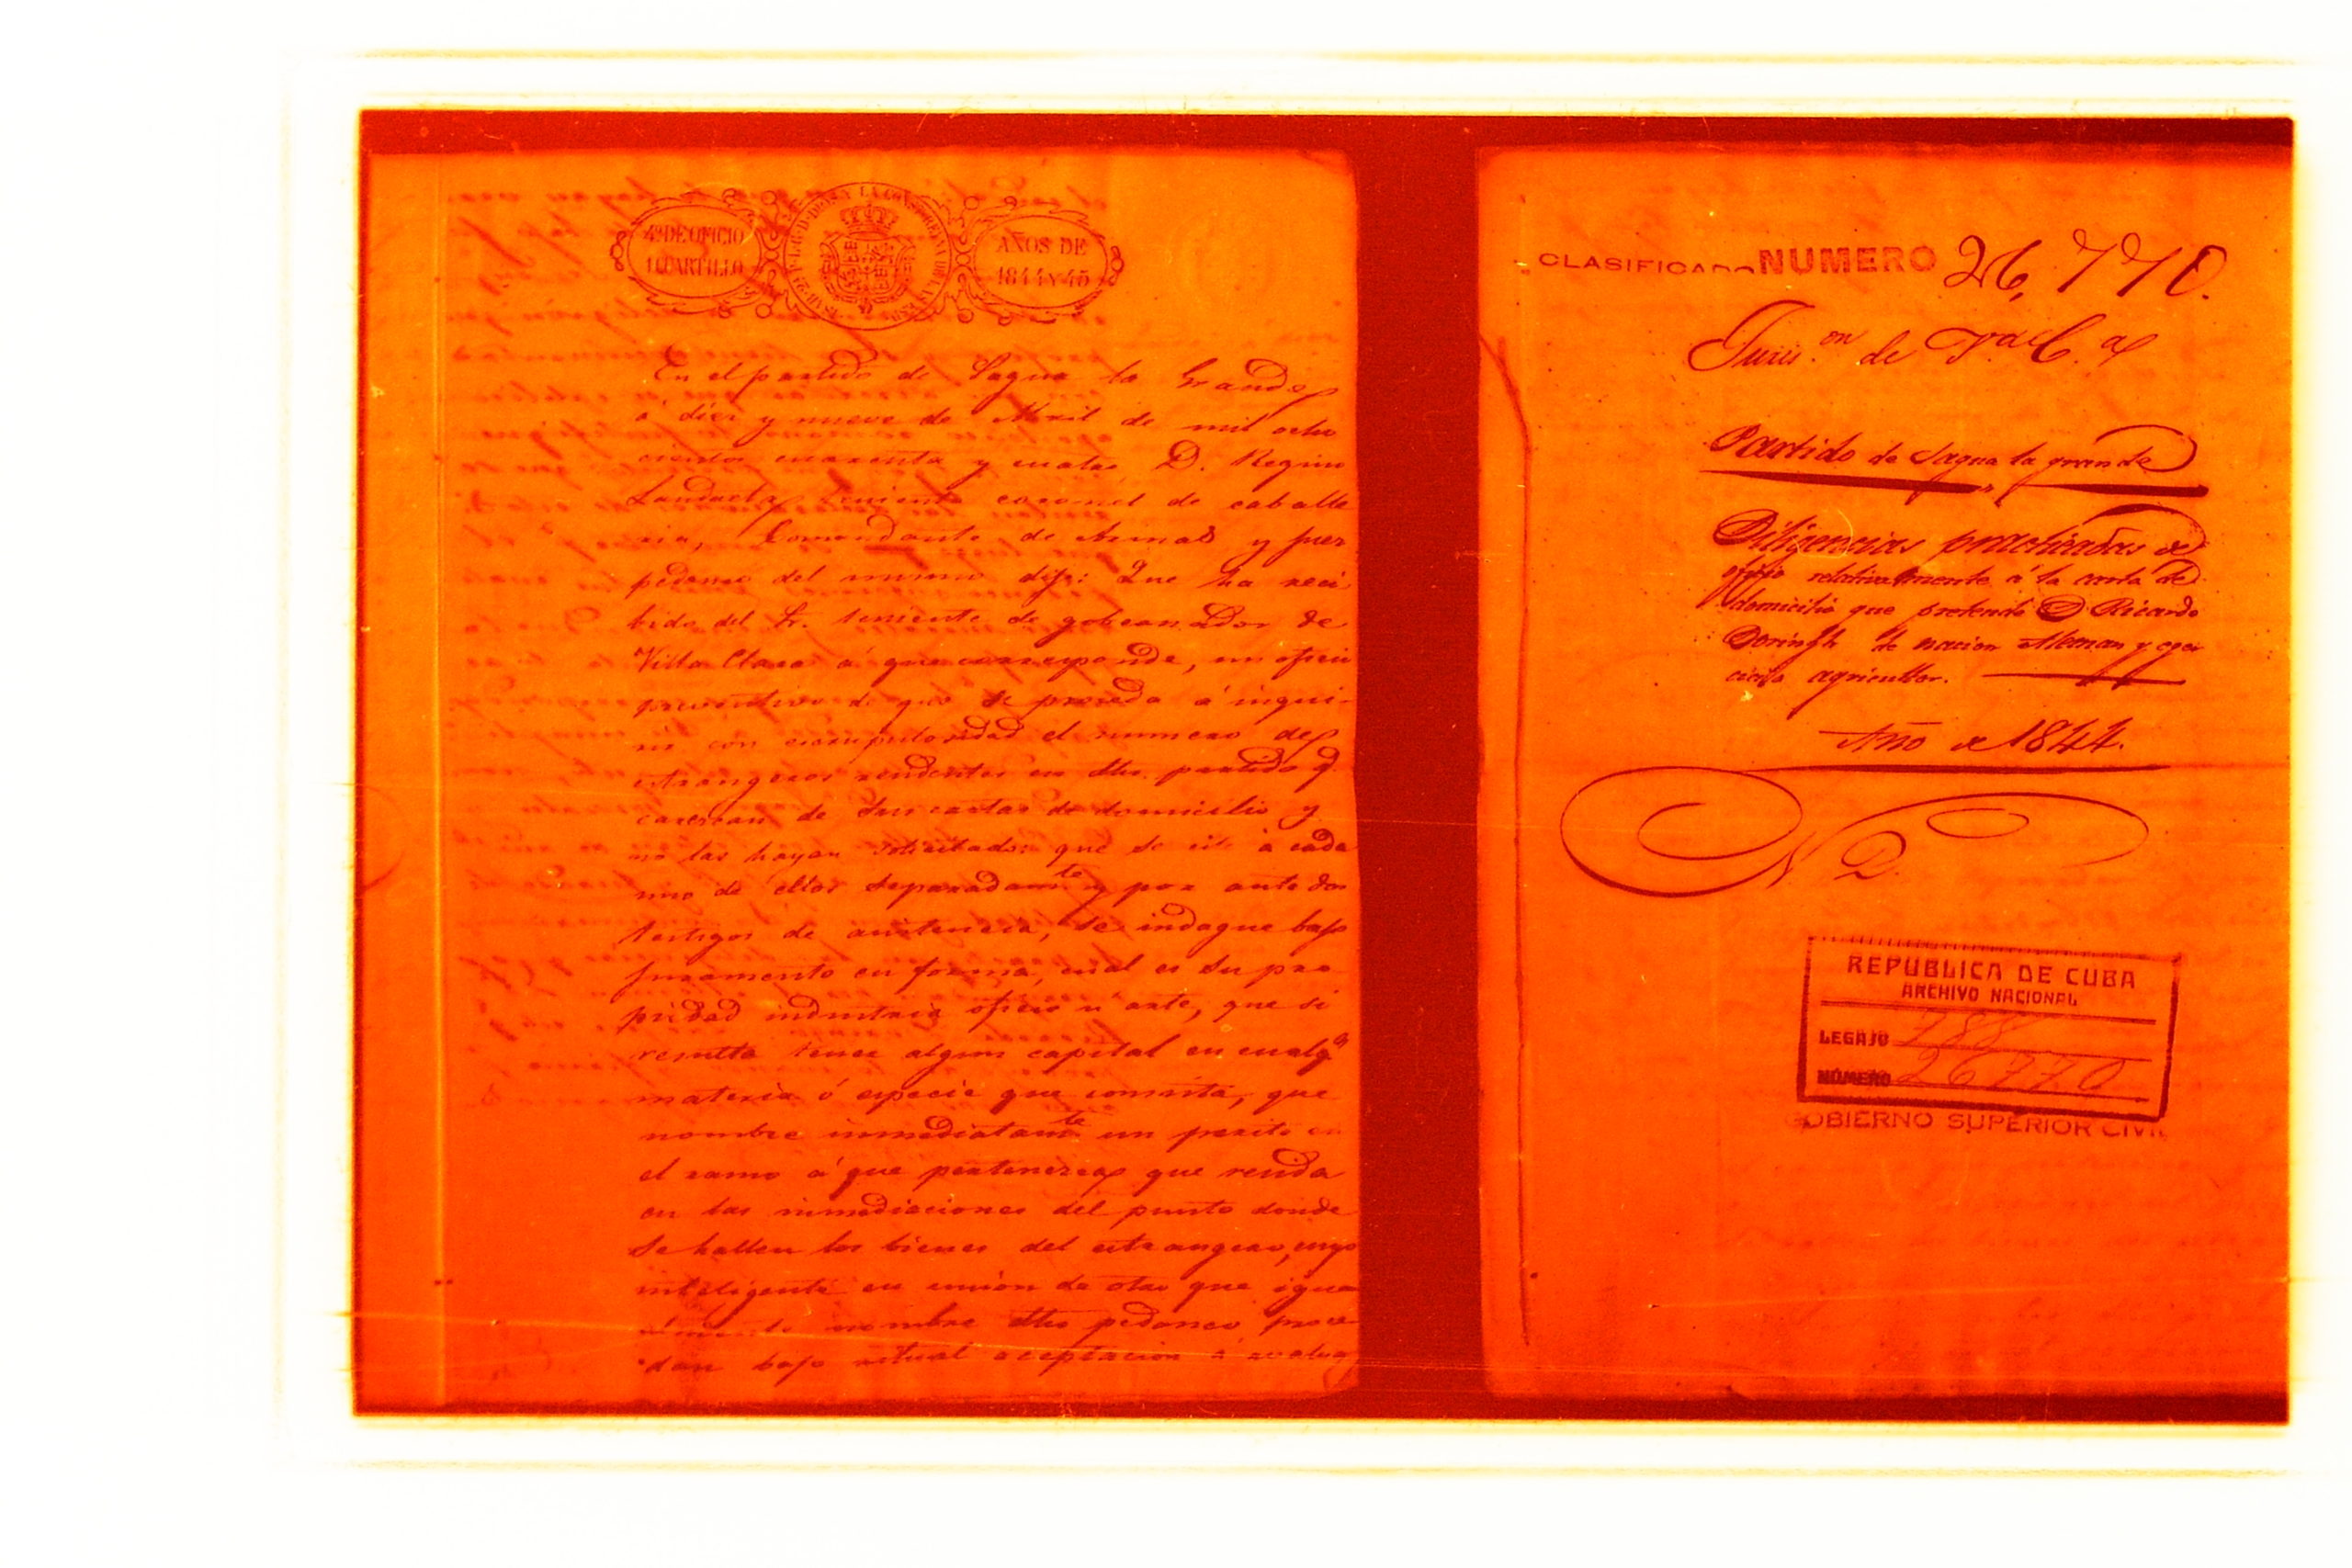 4º DE OFICIO
1 CUARTILLO
AÑOS DE
1844 Y 45
En el partido de Sagua la Grande
á diez y nueve de Abril de mil ocho
cientos cuarenta y cuatro, D. Regino
teniente coronel de caballe
ria, Comandante de Armas y juez
pedaneo del mismo dijo: Que ha reci
bido del Sr. teniente de gobernador de
Villa Clara á que corresponde, un oficio
preventivo de que se proceda á inqui-
rir con escrupulosidad el numero de
estrangeros residentes en dho. partido q.
carezcan de sus cartas de domicilio y
no las hayan solicitado: que se cite á cada
uno de ellos separadamte y por ante dos
testigos de asistencia, se indague bajo
juramento en forma, cual es su pro
piedad industria oficio u arte, que si
resulta tener algun capital en cualqa
materia ó especie que consista, que
nombre inmediatamte un perito en
el ramo á que pertenezca que resida
en las inmediaciones del punto donde
se hallen los bienes del estrangero, cuyo
inteligente en union de otro que igual
mente nombre dho pedaneo proce
dan bajo ritual aceptacion á
CLASIFICADO NUMERO 26,770.
Juris.on de Va C.a
Partido de Sagua la grande
Diligencias practicadas de
oficio relativamente á la carta de
domicilio que pretende D Ricardo
de nacion Aleman y eger
cicio agricultor.
Año de 1844.
REPUBLICA DE CUBA
ARCHIVO NACIONAL
LEGAJO 788
NÚMERO 26770
GOBIERNO SUPERIOR CIVIL